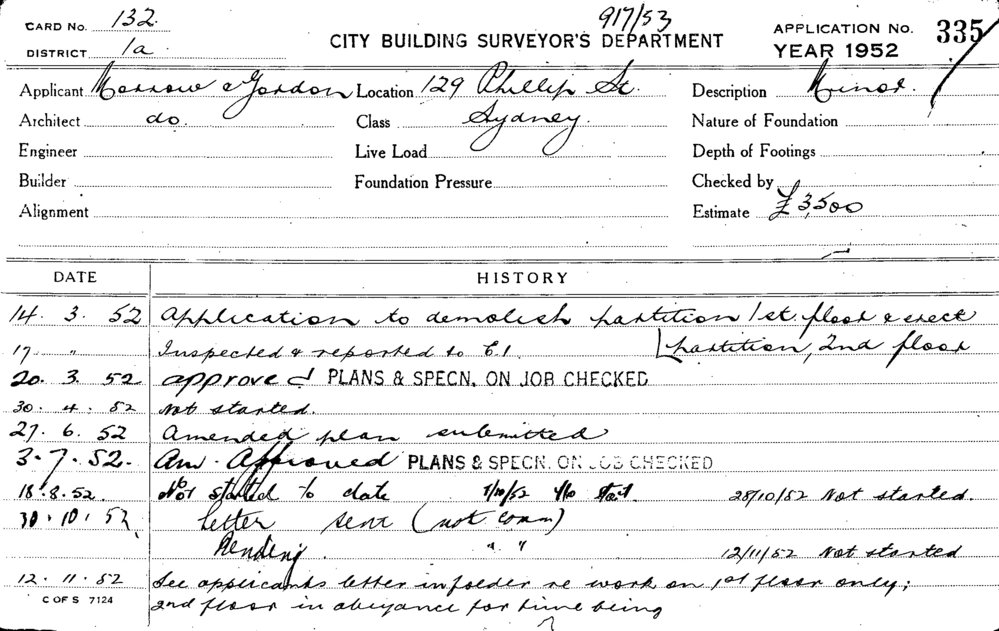 CARD No. 132. 917/53 APPLICATION No. 335
DISTRICT 1a. CITY BUILDING SURVEYOR'S DEPARTMENT YEAR 1952
Applicant Morrow & Gordon Location 129 Phillip St. Description Minor.
Architect do. Class Sydney. Nature of Foundation
Engineer Live Load Depth of Footings
Builder Foundation Pressure Checked by
Alignment Estimate £3,500
DATE HISTORY
14. 3. 52 Application to demolish partition 1st. floor & erect
17 " Inspected & reported to C.I. partition, 2nd floor
20. 3. 52 approved PLANS & SPECN. ON JOB CHECKED
30. 4. 52 Not started.
27. 6. 52 Amended plan submitted
3. 7. 52. Am. Approved PLANS & SPECN. ON JOB CHECKED
18. 8. 52. Not started to date 1/10/52 start 28/10/52 Not started.
30. 10. 52 letter sent (not comm)
Pending " " 12/11/52 Not started
12. 11. 52 See applicants letter in folder re work on 1st floor only;
C OF S 7124 2nd floor in abeyance for time being